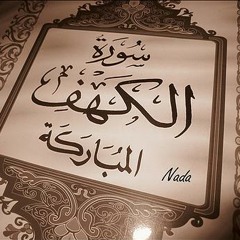 سُورَة
الكهف
المُبَارَكَة
Nada